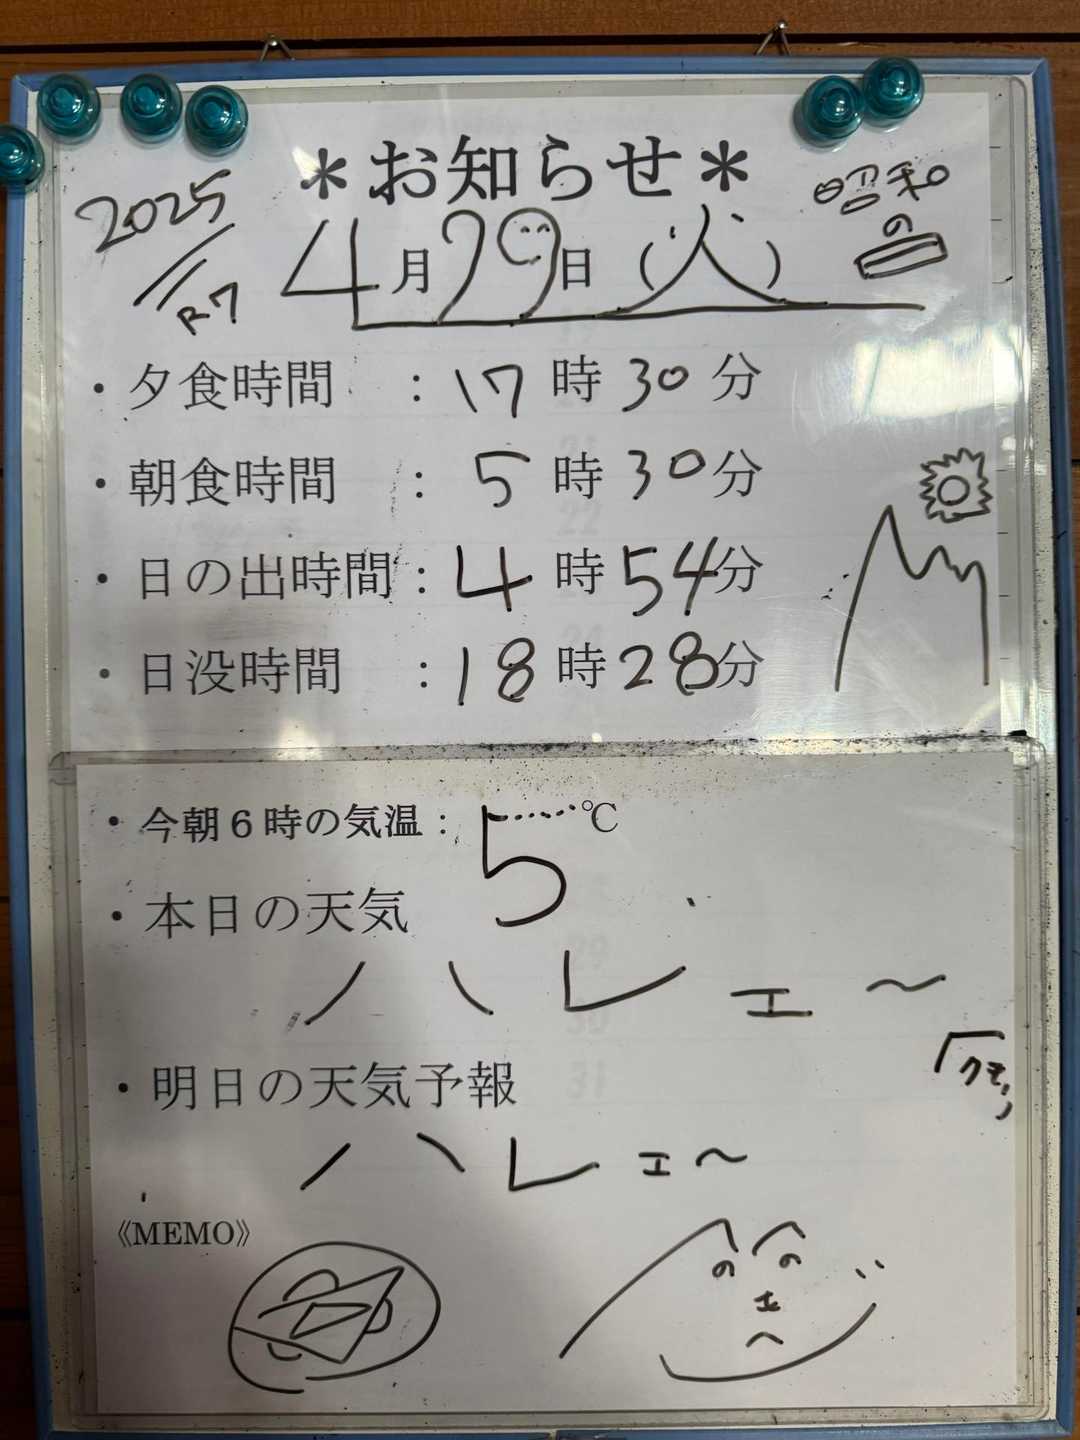 ＊お知らせ＊
2025
R7
4月29日（火）
昭和
の日
・夕食時間　：17時30分
・朝食時間　：5時30分
・日の出時間：4時54分
・日没時間　：18時28分
・今朝6時の気温：5℃
・本日の天気
ハレエ〜
・明日の天気予報
ハレエ〜
《MEMO》